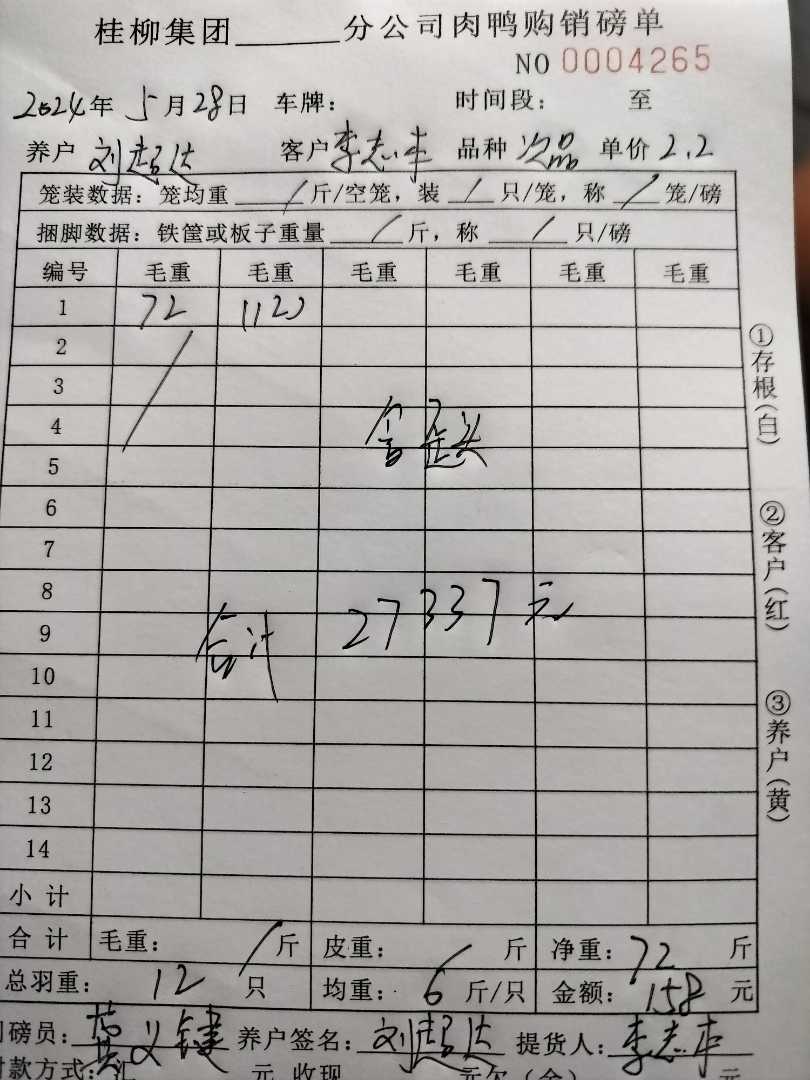 桂柳集团______分公司肉鸭购销磅单
NO 0004265
2024年 5月28日 车牌: 时间段: 至
养户 刘超达 客户 李志丰 品种 次品 单价 2.2
笼装数据: 笼均重 / 斤/空笼, 装 / 只/笼, 称 / 笼/磅
捆脚数据: 铁筐或板子重量 / 斤, 称 / 只/磅
编号 毛重 毛重 毛重 毛重 毛重 毛重
1 72
2
3
4
5
6
7
8
9
合计 27337元
10
11
12
13
14
小计
合计 毛重: / 斤 皮重: / 斤 净重: 72 斤
总羽重: 12 只 均重: 6 斤/只 金额: 158 元
磅员: 义键 养户签名: 刘超达 提货人: 李志丰
款方式: 汇 元 收现 元欠(余) 元
①存根(白)
②客户(红)
③养户(黄)